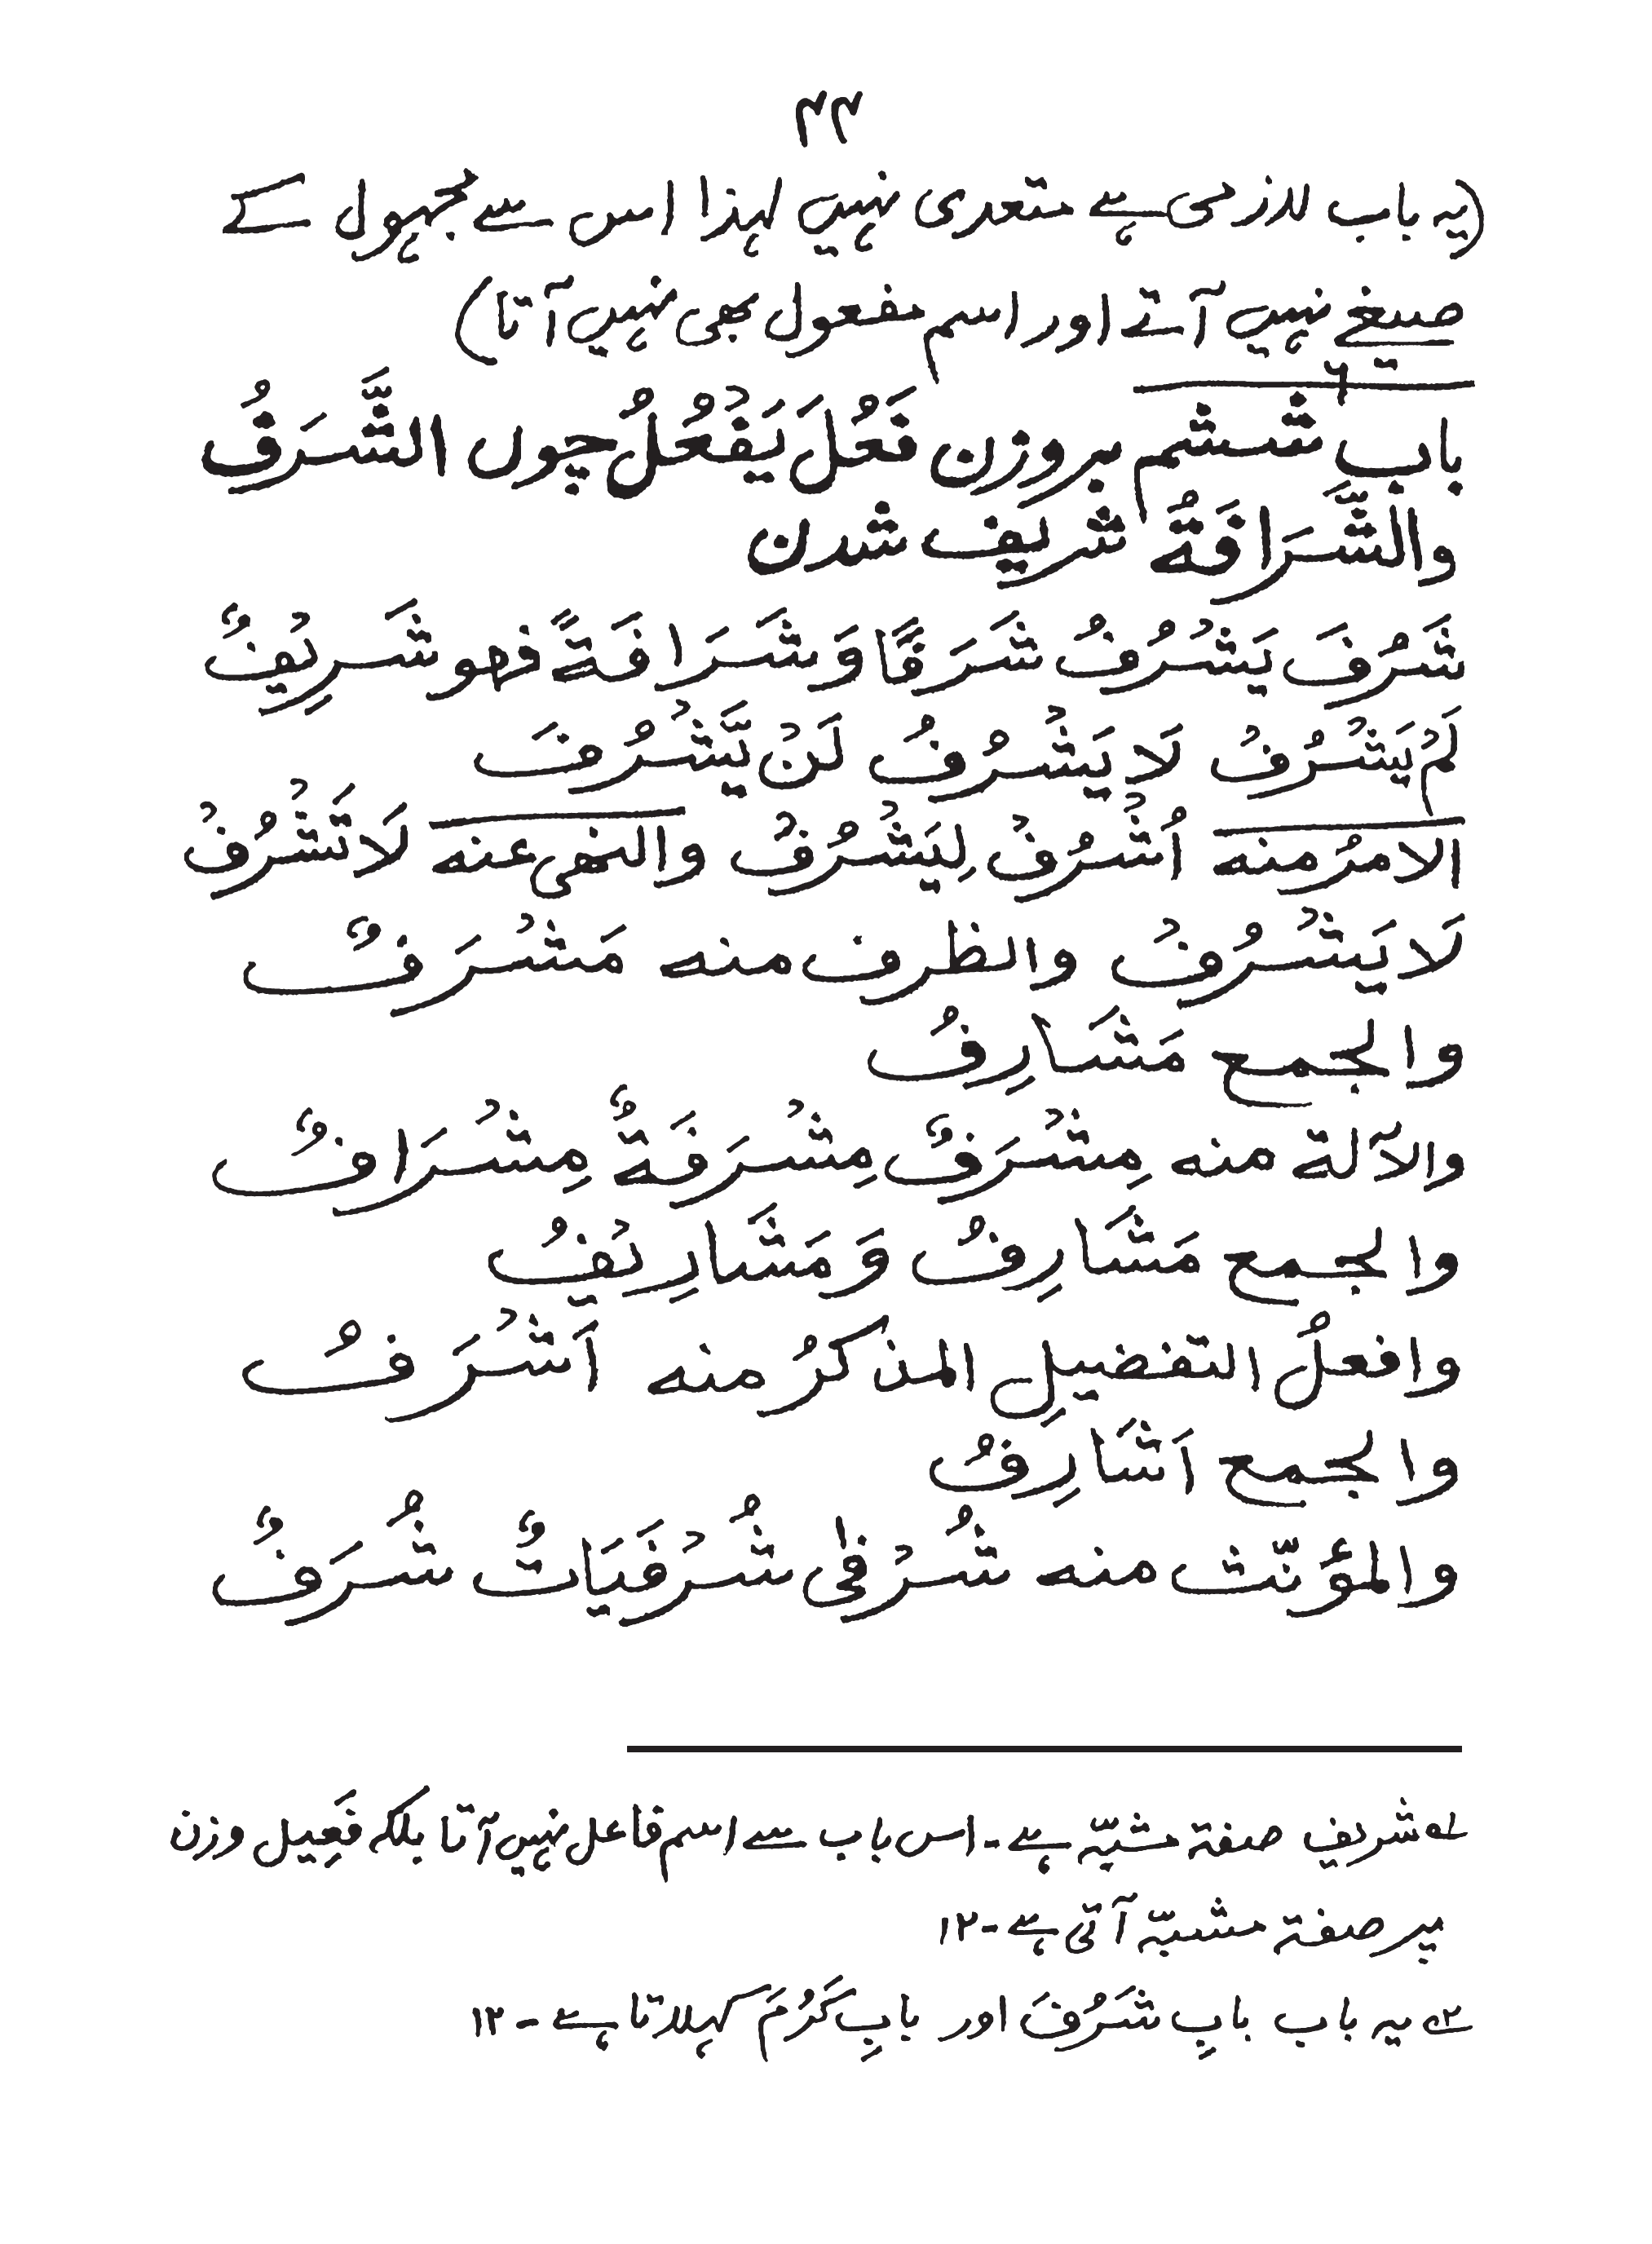 ۴۴
(یہ باب لازمی ہے متعدی نہیں لہذا اس سے مجہول کے
صیغے نہیں آتے اور اسم مفعول بھی نہیں آتا)
۶
بابِ ششم بروزن فَعُلَ يَفْعُلُ چوں الشَّرَفُ
والشَّرَافَةُ شریف شدن
شَرُفَ يَشْرُفُ شَرَفًا وَشَرَافَةً فهو شَرِيْفٌ
لَمْ يَشْرُفْ لَا يَشْرُفُ لَنْ يَّشْرُفَ
الامرُ منه اُشْرُفْ لِيَشْرُفْ والنهی عنه لَا تَشْرُفْ
لَا يَشْرُفْ والظرف منه مَشْرَفٌ
والجمع مَشَارِفُ
والآلة منه مِشْرَفٌ مِشْرَفَةٌ مِشْرَافٌ
والجمع مَشَارِفُ وَمَشَارِيْفُ
وافعلُ التفضيلِ المذكرُ منه اَشْرَفُ
والجمع اَشَارِفُ
والمؤنّث منه شُرْفٰی شُرْفَيَاتٌ شُرَفٌ
۱؎ شریف صفة مشبّہ ہے۔ اس باب سے اسم فاعل نہیں آتا بلکہ فَعِیل وزن
پر صفة مشبّہ آتی ہے۔ ۱۲
۲؎ یہ باب بابِ شَرُفَ اور بابِ كَرُمَ کہلاتا ہے ۔ ۱۲